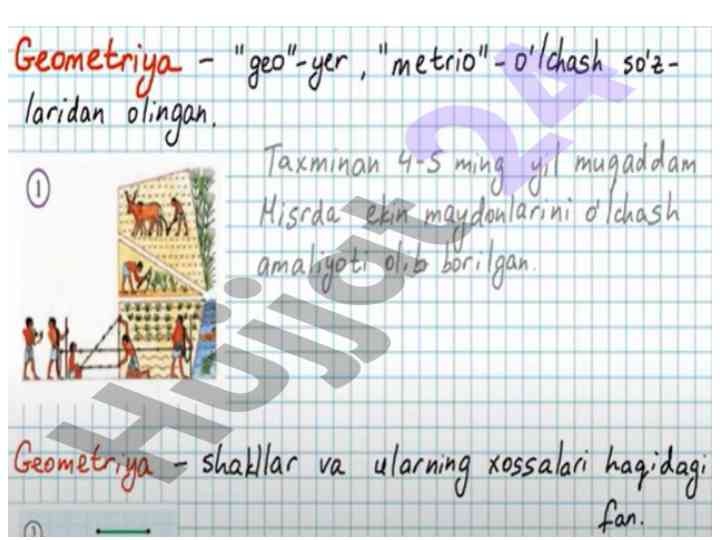 Geometriya - "geo"-yer, "metrio"-o'lchash so'z-
laridan olingan.
1
Taxminan 4-5 ming yil muqaddam
Misrda ekin maydonlarini o'lchash
amaliyoti olib borilgan.
Hujjat 24
Geometriya - shakllar va ularning xossalari haqidagi
fan.
1